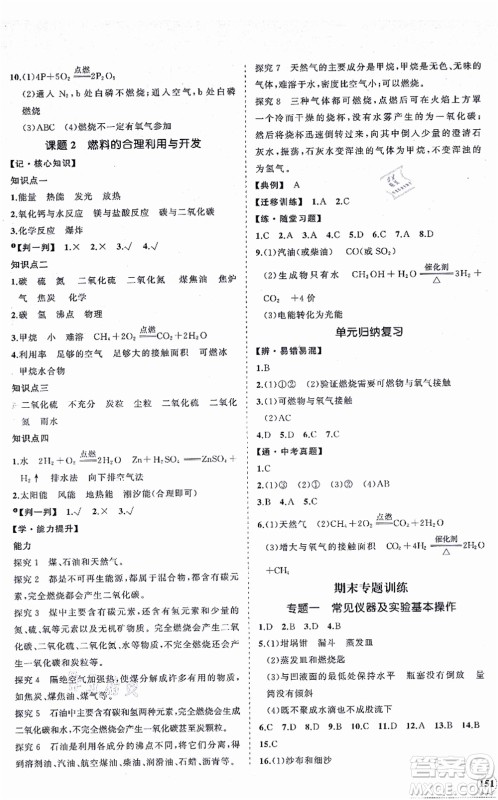 10.(1)4P+5O₂ 点燃 2P₂O₅
(2)通入 N₂,b 处白磷不燃烧;通入空气,b 处白磷
燃烧
(3)ABC (4)燃烧不一定有氧气参加
课题 2 燃料的合理利用与开发
【记·核心知识】
知识点一
1.能量 热能 放热 吸热 放热
2.氧化钙与水反应 镁与盐酸反应 二氧化碳
3.化学反应 爆炸
【判一判】 1.× 2.× 3.√ 4.×
知识点二
1.碳 硫 氮 二氧化硫 二氧化氮 煤焦油 焦炉
气 化学
2.碳 氢 沸点 物理
3.甲烷 小 难溶 CH₄+2O₂ 点燃 CO₂+2H₂O
4.利用率 足够多的空气 足够大的接触面积 可燃冰
甲烷水合物
知识点三
二氧化硫 不充分 炭 二氧化硫 二氧化碳 二氧化
氮 雨水
知识点四
1.水 2H₂+O₂ 点燃 2H₂O Zn+H₂SO₄ ══ ZnSO₄
+H₂↑ 排水法 向下排空气法
2.太阳能 风能 地热能 潮汐能(合理即可)
【判一判】 1.√ 2.× 3.√ 4.√
【学·能力提升】
能力
探究 1 煤、石油和天然气。
探究 2 都是不可再生能源,都是混合物,都含有碳元
素,完全燃烧都会产生二氧化碳。
探究 3 煤中主要含有碳元素,此外还含有氢元素和少
量的氮、硫、氧等元素以及无机矿物质元素等。煤中主
要含碳元素,完全燃烧会产生二氧化碳,煤中还含少量
的硫、氮元素,所以煤燃烧还会产生二氧化硫、二氧化
氮等污染物。
探究 4 隔绝空气加强热使煤分解成许多有用的物质,
如焦炭、煤焦油、煤气等。
探究 5 石油中主要含有碳和氢两种元素,完全燃烧会
产生二氧化碳和水。
探究 6 石油中各成分的沸点不同,可得到溶剂油、汽
油、航空煤油、煤油、柴油、润滑油、石蜡、沥青等。
探究 7 天然气的主要成分是甲烷,甲烷是无色、无味的
气体,难溶于水,密度比空气小。
探究 8 三种气体都可燃烧,点燃后可在火焰上方罩一
个冷而干燥的烧杯,无水雾产生的为一氧化碳;有水雾
产生的,燃烧后将烧杯迅速倒过来,倒入少量的澄清石
灰水,振荡,石灰水变浑浊的为甲烷;石灰水不变浑浊的
为氢气。
【典例】 A
【迁移训练】 C
【练·随堂习题】
1.C 2.A 3.B 4.C 5.D 6.C 7.C 8.C
9.(1)汽油(或柴油) CO(或 SO₂)
(2)生成物只有水 CH₃OH+H₂O 催化剂 △ 3H₂+
CO₂ +4价
(3)电能转化为化学能
单元归纳复习
【辨·易错易混】
1.B
2.(1)①② (2)验证燃烧需可燃物与氧气接触
(3)①③ (4)可燃物与氧气接触
(2)AC
3.D 4.B 5.D 6.B
【通·中考真题】
1.A 2.D 3.C 4.B 5.C
6.(1)天然气 (2)CH₄+2O₂ 点燃 CO₂+2H₂O
(3)增大与氧气的接触面积 CO₂+4H₂ 催化剂 △ CH₄+
2H₂O
期末专题训练
专题一 常见仪器及实验基本操作
1.D 2.D 3.C 4.A
5.(1)坩埚钳 漏斗 蒸发皿
(2)蒸发皿和坩埚
(3)与凹液面的最低处保持水平 瓶塞没有倒放在桌
面上
(4)末端产生水滴但不滴下 烧杯
(5)橡皮管内形成水流或不成气泡
6.C 7.C 8.D 9.D 10.B 11.A 12.D
13.A 14.B 15.D
16.(1)纱布和细沙
151